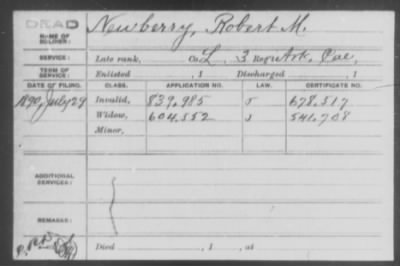 DEAD
NAME OF SOLDIER: Newberry, Robert M.
SERVICE: Late rank, Co. L, 3 Reg't Ark. Cav.
TERM OF SERVICE: Enlisted , 1 Discharged , 1
DATE OF FILING. CLASS. APPLICATION NO. LAW. CERTIFICATE NO.
1890, July 29 Invalid, 839,985 J 678,517
Widow, 604,552 J 541,708
Minor,
ADDITIONAL SERVICES:
REMARKS:
Died , 1 , at